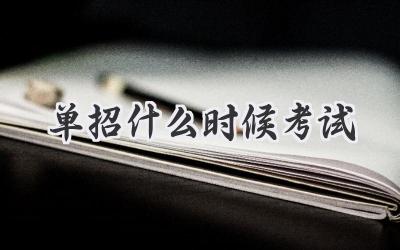 单招什么时候考试